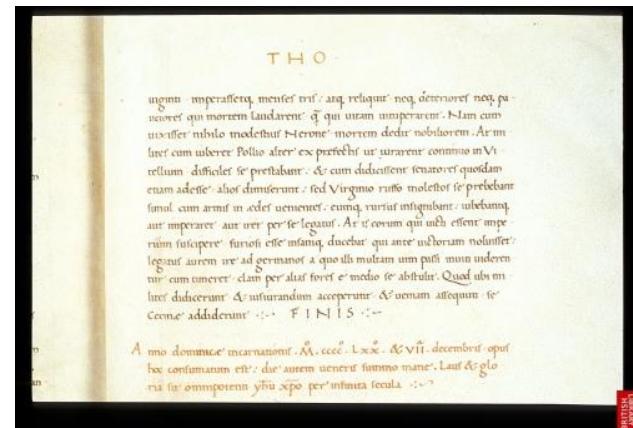 THO
uiginti imperassetq, menses tris: atq, reliquit neq, deteriores neq, pau
ciores qui mortem laudarent q̄ qui uitam uituperarent. Nam cum
uixisset nihilo modestius Nerone mortem dedit nobiliorem. At mi
lites cum iuberet Pollio alter ex prefectis ut iurarent continuo in Vi
tellium difficiles se prestabant: & cum didicissent senatores quosdam
etiam adesse alios dimiserunt: sed Virginio ruffo molestos se prebebant
simul cum armis in ædes uenientes: eumq, rursus insignibant: iubebantq,
aut imperaret aut iret per se legatus. At is eorum qui uicti essent impe
rium suscipere furiosi esse insaniq, ducebat qui ante uictorum noluisset:
legatus autem ire ad germanos a quo illi multam uim passi inuiti uideren
tur cum timeret clam per alias fores e medio se abstulit. Quod ubi mi
lites didicerunt & iusiurandum acceperunt & ueniam assequuti se
Cecinæ addiderunt FINIS
Anno dominicæ incarnationis. M. cccc. Lxx. & VII. decembris opus
hoc consumatum est: die autem ueneris summo mane. Laus & glo
ria sit omnipotenti yhu xpo per infinita secula
BRITISH
LIBRARY